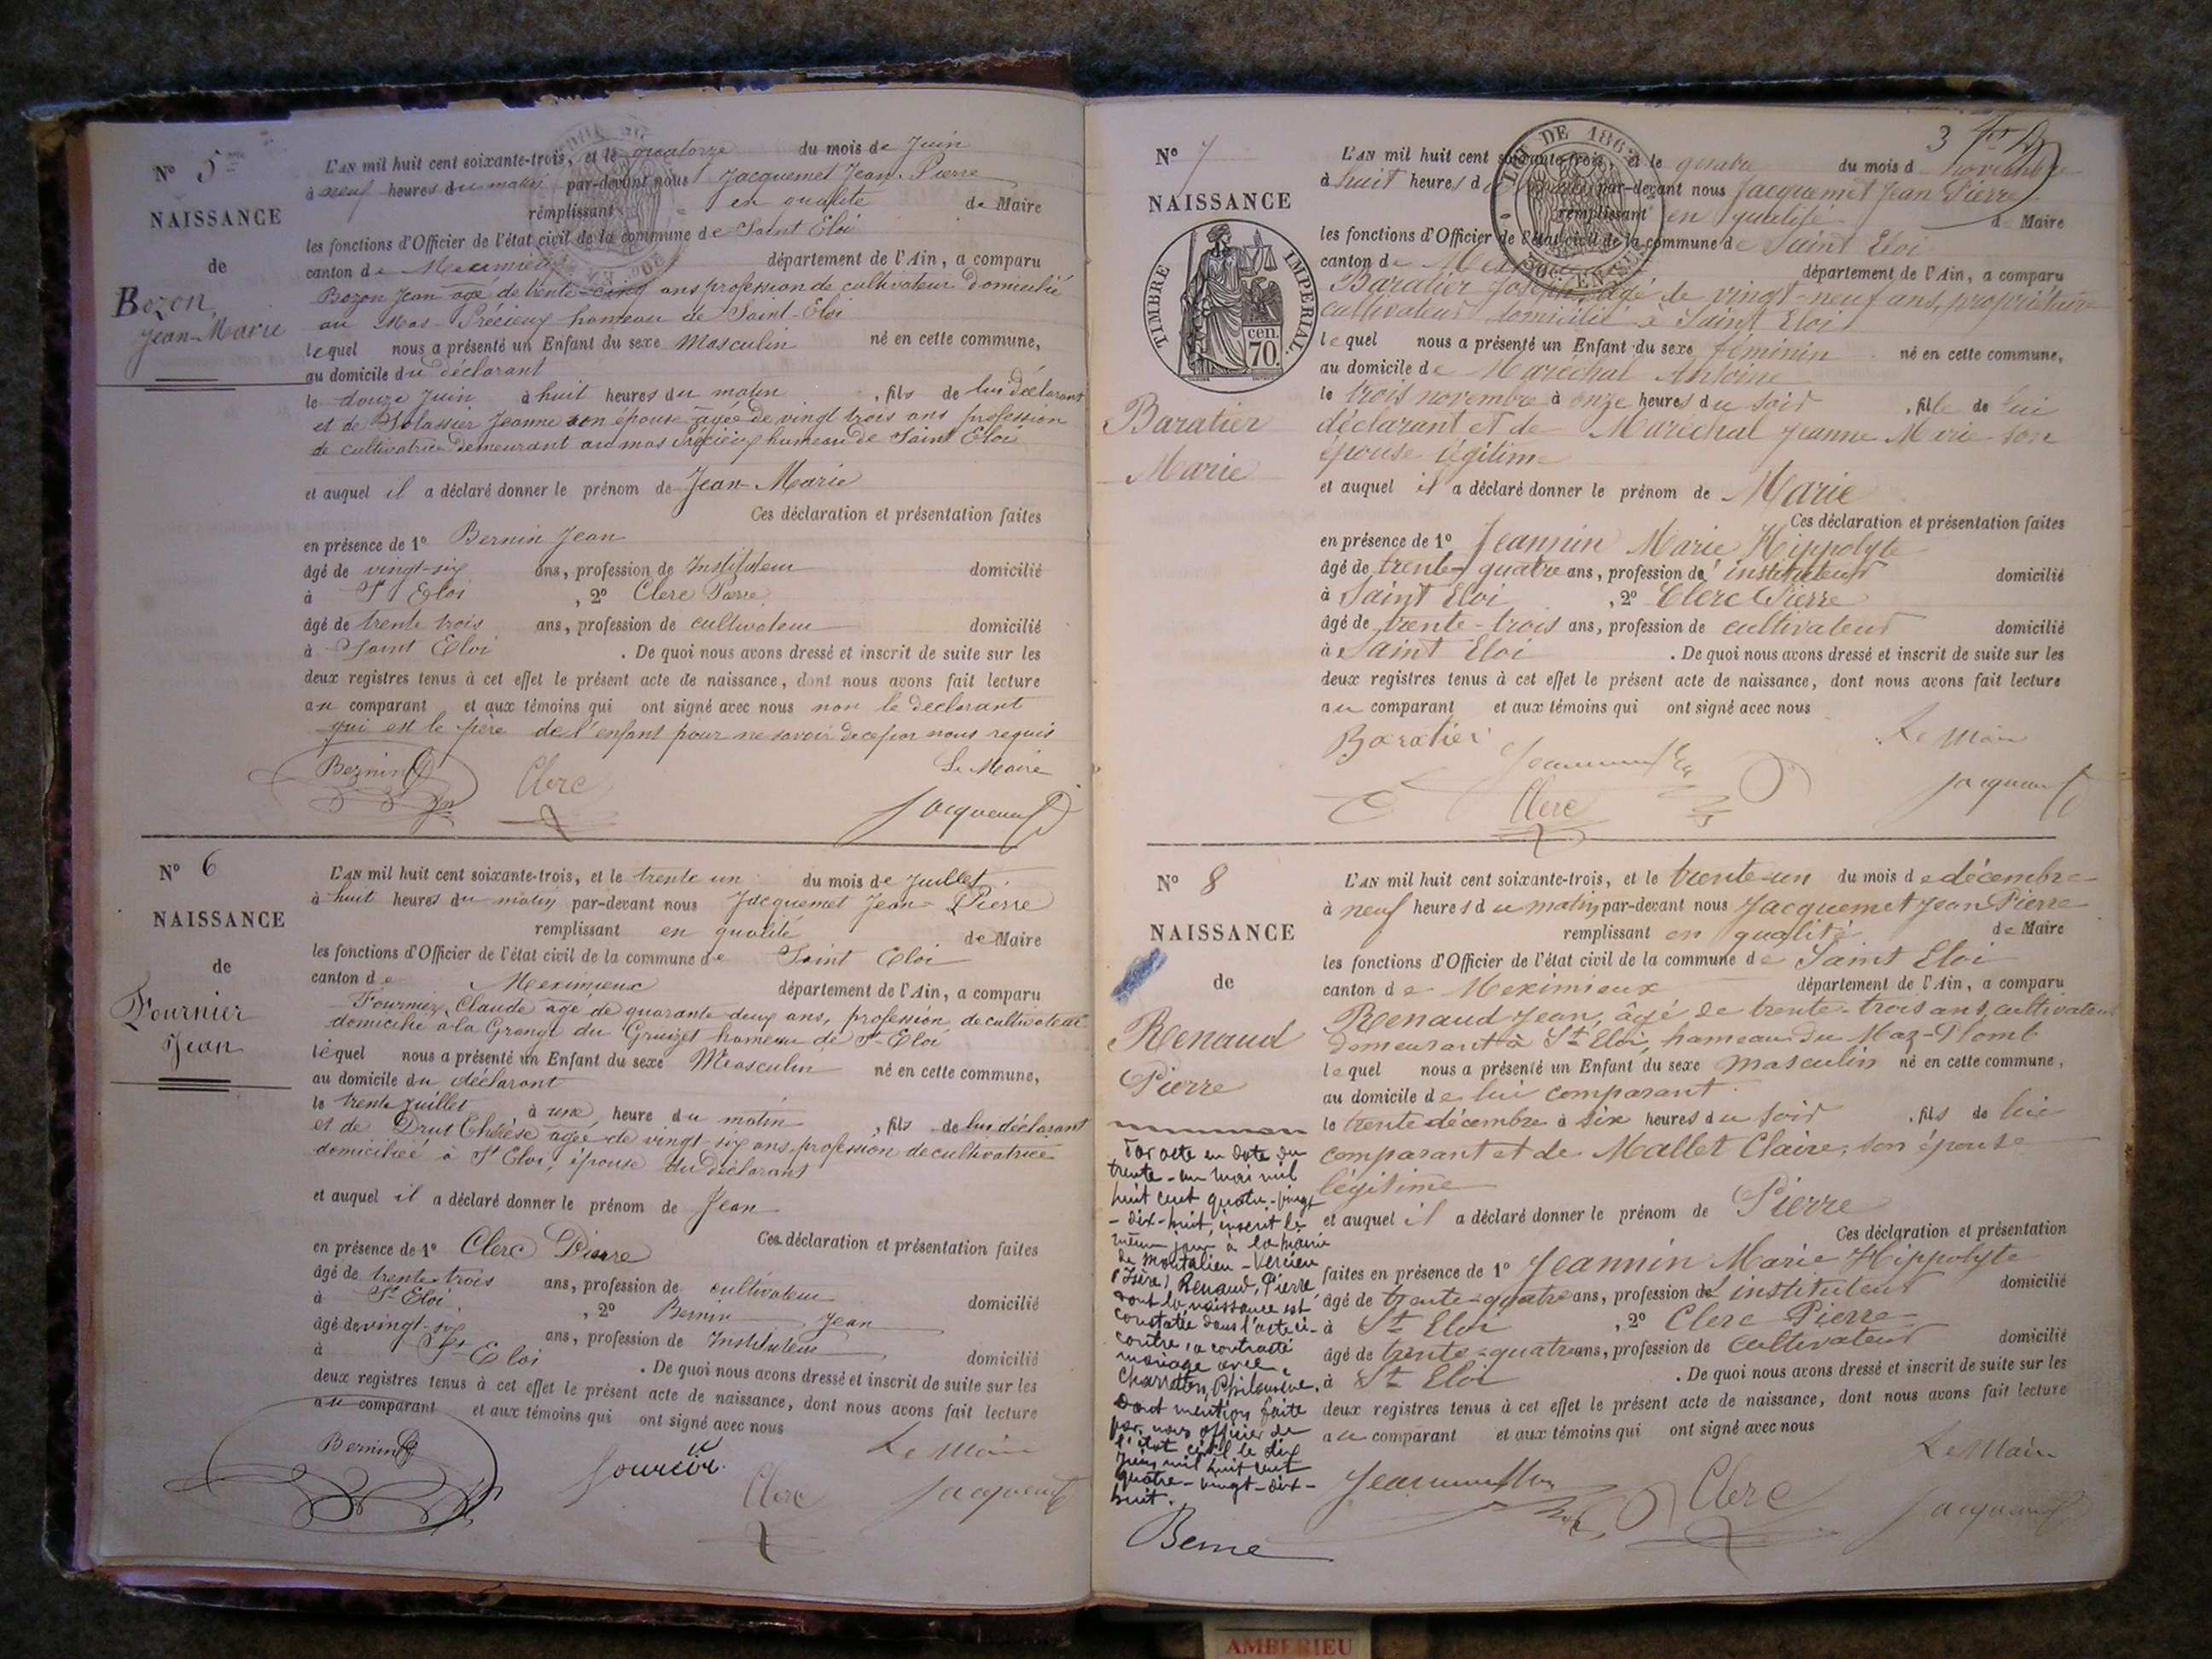 No 5me
NAISSANCE
de
Bozon,
Jean-Marie
L'AN mil huit cent soixante-trois, et le quatorze du mois de Juin
à neuf heures du matin par-devant nous Jacquemet Jean-Pierre
remplissant en qualité de Maire
les fonctions d'Officier de l'état civil de la commune de Saint Eloi
canton de Meximieux département de l'Ain, a comparu
Bozon Jean agé de trente-cinq ans profession de cultivateur domicilié
au Mas-Précieux hameau de Saint-Eloi
lequel nous a présenté un Enfant du sexe Masculin né en cette commune,
au domicile du déclarant
le douze Juin à huit heures du matin, fils de lui déclarant
et de Solassier Jeanne son épouse agée de vingt trois ans profession
de cultivatrice demeurant au mas Précieux hameau de Saint Eloi
et auquel il a déclaré donner le prénom de Jean-Marie
Ces déclaration et présentation faites
en présence de 1º Bernin Jean
âgé de vingt-six ans, profession de Instituteur domicilié
à St Eloi, 2º Clerc Pierre
âgé de trente trois ans, profession de cultivateur domicilié
à Saint Eloi. De quoi nous avons dressé et inscrit de suite sur les
deux registres tenus à cet effet le présent acte de naissance, dont nous avons fait lecture
au comparant et aux témoins qui ont signé avec nous non le déclarant
qui est le père de l'enfant pour ne savoir de ce par nous requis
Bernin Clerc Le Maire
Jacquemet
No 6
NAISSANCE
de
Fournier
Jean
L'AN mil huit cent soixante-trois, et le trente un du mois de Juillet
à huit heures du matin par-devant nous Jacquemet Jean-Pierre
remplissant en qualité de Maire
les fonctions d'Officier de l'état civil de la commune de Saint Eloi
canton de Meximieux département de l'Ain, a comparu
Fournier Claude agé de quarante deux ans, profession de cultivateur
domicilié à la Grange du Gruizet hameau de St Eloi
lequel nous a présenté un Enfant du sexe Masculin né en cette commune,
au domicile du déclarant
le trente juillet, à une heure du matin, fils de lui déclarant
et de Drut Thérèse agée de vingt-six ans, profession de cultivatrice
domiciliée à St Eloi, épouse du déclarant
et auquel il a déclaré donner le prénom de Jean
Ces déclaration et présentation faites
en présence de 1º Clerc Pierre
âgé de trente trois ans, profession de cultivateur domicilié
à St Eloi, 2º Bernin Jean
âgé de vingt-six ans, profession de Instituteur domicilié
à St Eloi. De quoi nous avons dressé et inscrit de suite sur les
deux registres tenus à cet effet le présent acte de naissance, dont nous avons fait lecture
au comparant et aux témoins qui ont signé avec nous
Bernin Clerc Le Maire
Jacquemet
3
No 7
NAISSANCE
TIMBRE IMPERIAL
cen. 70.
Baratier
Marie
L'AN mil huit cent soixante-trois, et le quatre du mois de novembre
à huit heures du par-devant nous Jacquemet Jean Pierre
remplissant en qualité de Maire
les fonctions d'Officier de l'état civil de la commune de Saint Eloi
canton de département de l'Ain, a comparu
Baratier Joseph, âgé de vingt-neuf ans, propriétaire
cultivateur domicilié à Saint Eloi
lequel nous a présenté un Enfant du sexe féminin né en cette commune,
au domicile de Maréchal Antoine
le trois novembre à onze heures du soir, fille de lui
déclarant et de Maréchal Jeanne Marie son
épouse légitime
et auquel il a déclaré donner le prénom de Marie
Ces déclaration et présentation faites
en présence de 1º Jeannin Marie Hippolyte
âgé de trente-quatre ans, profession d'instituteur domicilié
à Saint Eloi, 2º Clerc Pierre
âgé de trente-trois ans, profession de cultivateur domicilié
à Saint Eloi. De quoi nous avons dressé et inscrit de suite sur les
deux registres tenus à cet effet le présent acte de naissance, dont nous avons fait lecture
au comparant et aux témoins qui ont signé avec nous
Baratier Le Maire
Clerc Jacquemet
No 8
NAISSANCE
de
Renaud
Pierre
Par acte en date du
trente-un mai mil
huit cent quatre-vingt
-dix-huit, inscrit le
même jour à la mairie
de Montalieu-Vercieu
(Isère) Renaud, Pierre
dont la naissance est
constatée dans l'acte ci-
contre, a contracté
mariage avec
Charreton, Philomène.
Dont mention faite
par nous officier de
l'état civil le dix
Juin mil huit cent
quatre-vingt-dix-
huit.
Berne
L'AN mil huit cent soixante-trois, et le trente-un du mois de décembre
à neuf heures du matin par-devant nous Jacquemet Jean Pierre
remplissant en qualité de Maire
les fonctions d'Officier de l'état civil de la commune de Saint Eloi
canton de Meximieux département de l'Ain, a comparu
Renaud Jean, âgé de trente-trois ans, cultivateur
demeurant à St Eloi, hameau du Maz-Plomb
lequel nous a présenté un Enfant du sexe masculin né en cette commune,
au domicile de lui comparant
le trente décembre à six heures du soir, fils de lui
comparant et de Mallet Claire, son épouse
légitime
et auquel il a déclaré donner le prénom de Pierre
Ces déclaration et présentation
faites en présence de 1º Jeannin Marie Hippolyte
âgé de trente-quatre ans, profession d'instituteur domicilié
à St Eloi, 2º Clerc Pierre
âgé de trente-quatre ans, profession de cultivateur domicilié
à St Eloi. De quoi nous avons dressé et inscrit de suite sur les
deux registres tenus à cet effet le présent acte de naissance, dont nous avons fait lecture
au comparant et aux témoins qui ont signé avec nous
Le Maire
Clerc Jacquemet
AMBERIEU